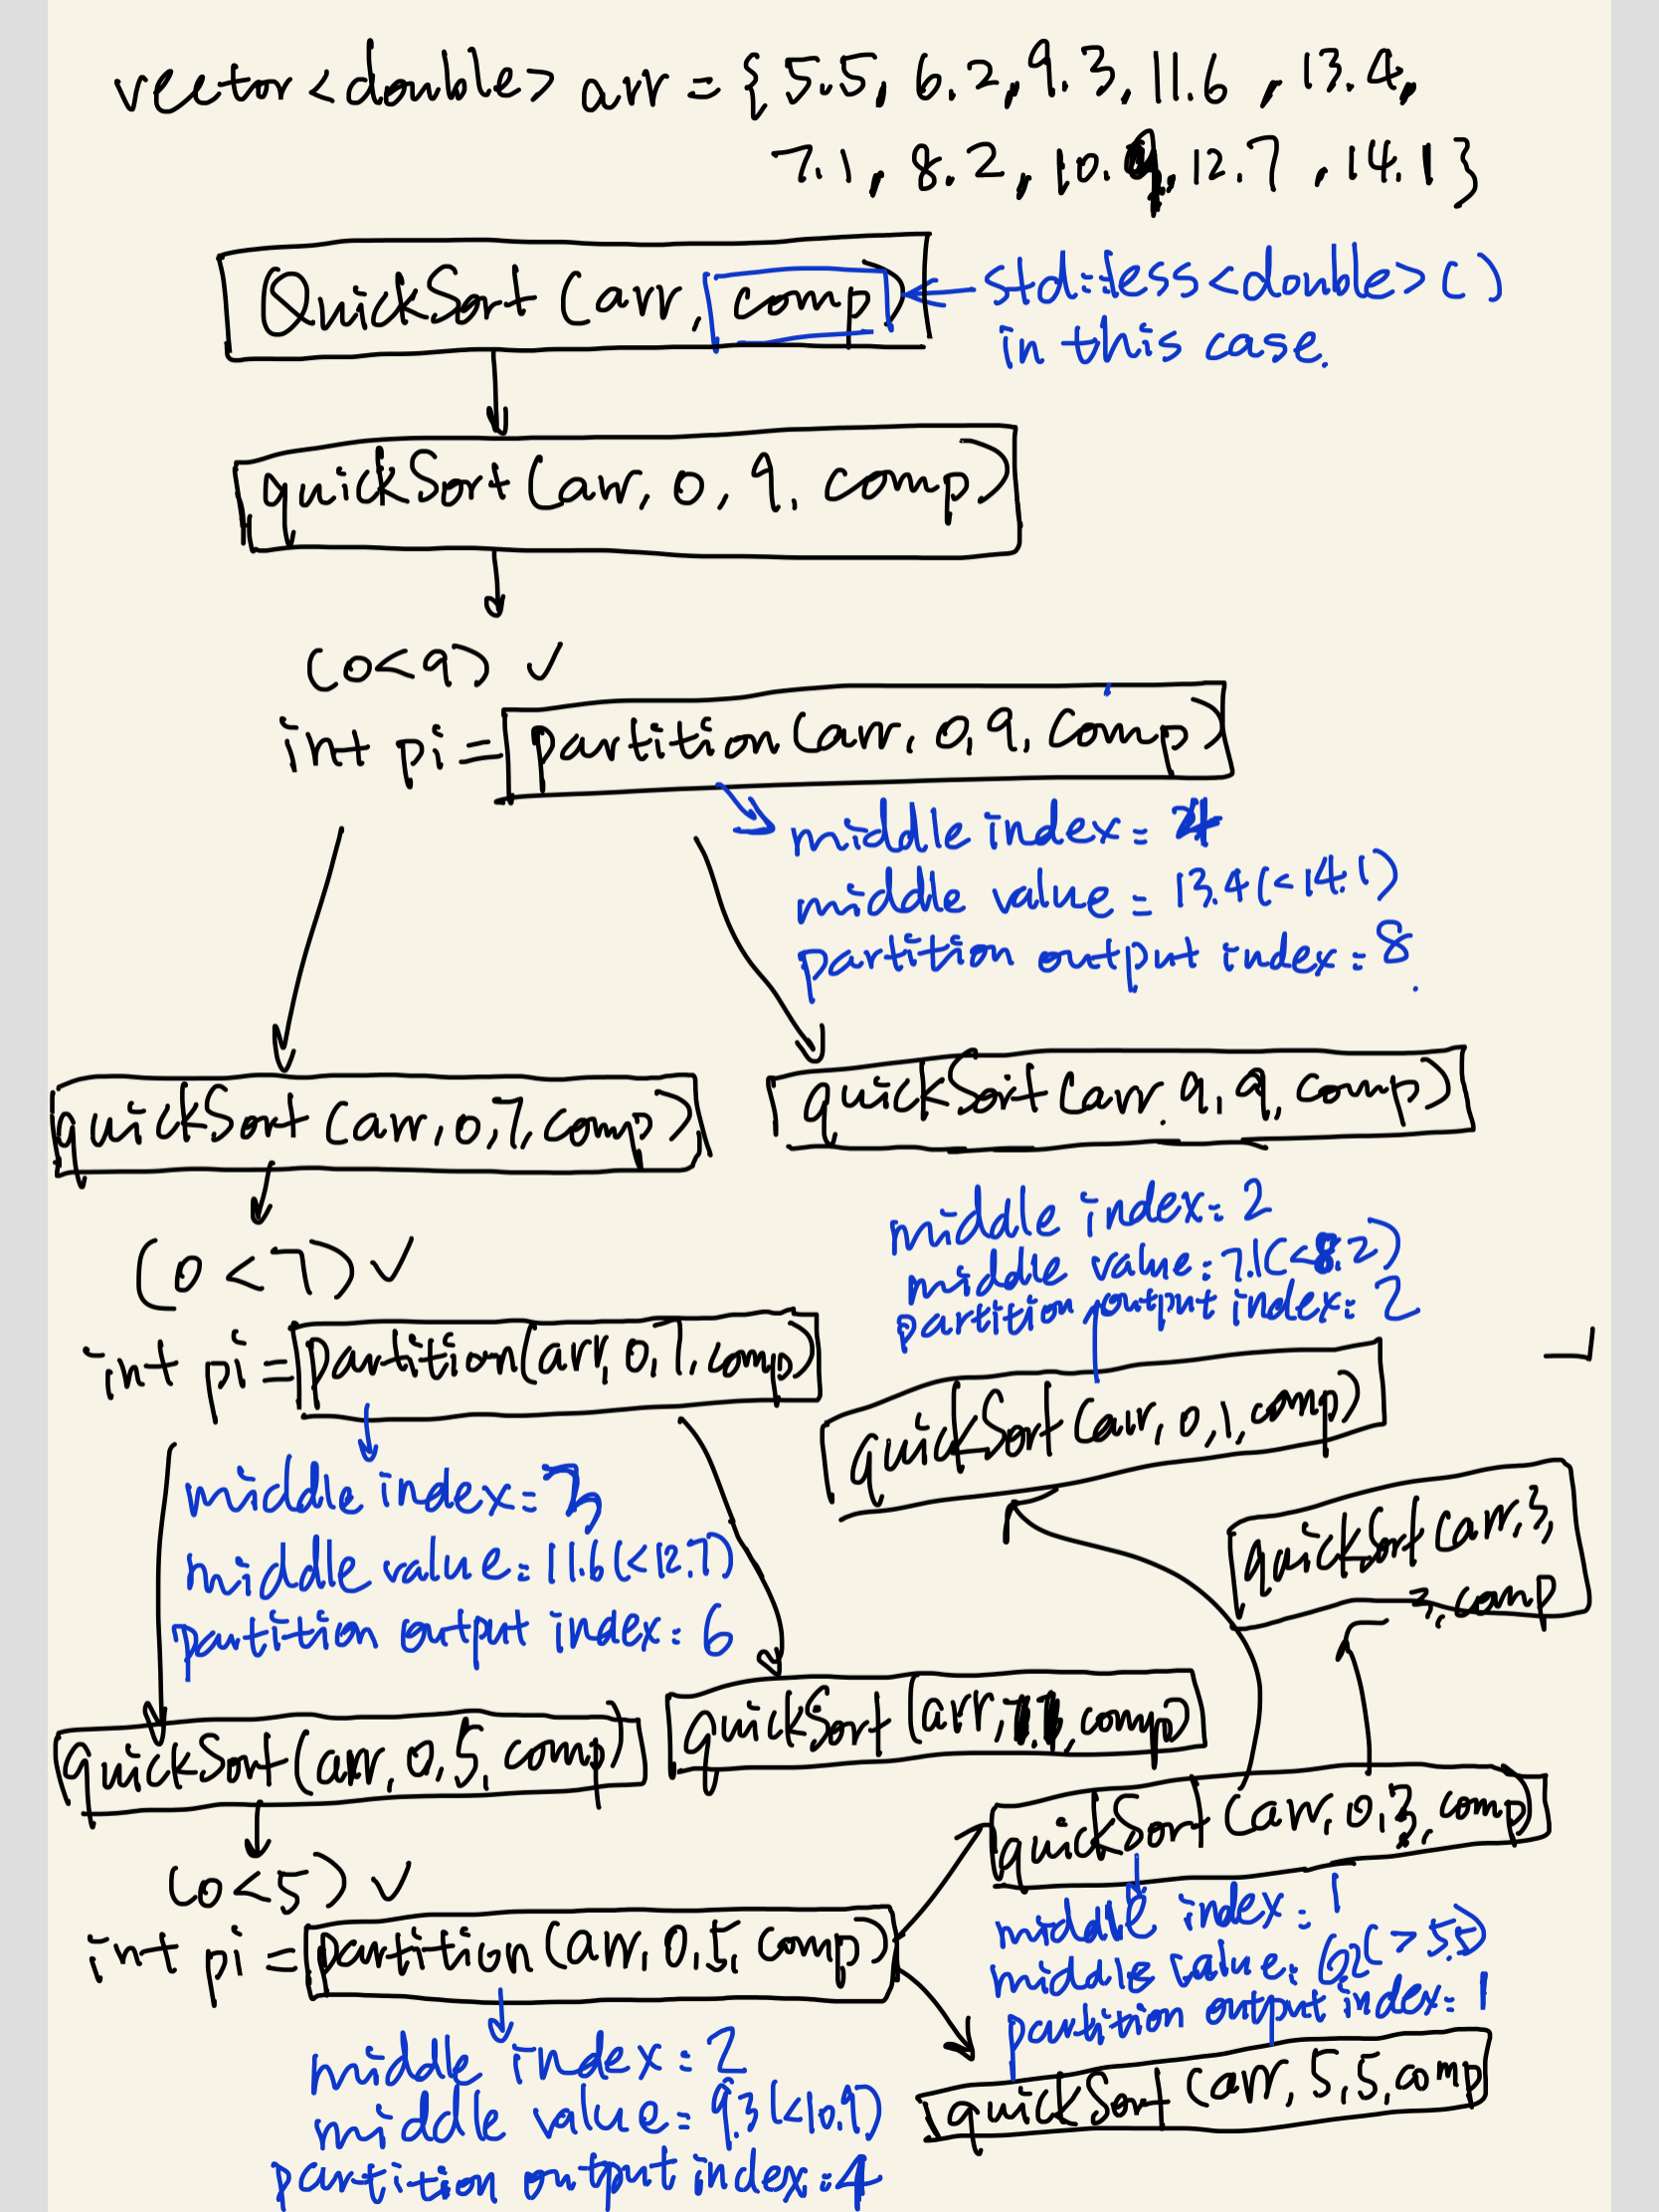 vector<double> arr = {5.5, 6.2, 9.3, 11.6, 13.4,
7.1, 8.2, 10.9, 12.7, 14.1}
QuickSort(arr, comp)
std::less<double>()
in this case.
quickSort(arr, 0, 9, comp)
(0<9) ✓
int pi = partition(arr, 0, 9, comp)
middle index: 4
middle value = 13.4(<14.1)
partition output index: 8
quickSort(arr, 0, 7, comp)
quickSort(arr, 9, 9, comp)
(0<7) ✓
int pi = partition(arr, 0, 7, comp)
middle index: 3
middle value: 11.6(<12.7)
partition output index: 6
middle index: 2
middle value: 7.1(<8.2)
partition output index: 2
quickSort(arr, 0, 1, comp)
quickSort(arr, 3,
3, comp
quickSort(arr, 0, 5, comp)
quickSort(arr, comp)
(0<5) ✓
int pi = partition(arr, 0, 5, comp)
middle index: 2
middle value: 9.3(<10.9)
partition output index: 4
quickSort(arr, 0, 3, comp)
middle index: 1
middle value: 6.2(>5.5)
partition output index: 1
quickSort(arr, 5, 5, comp